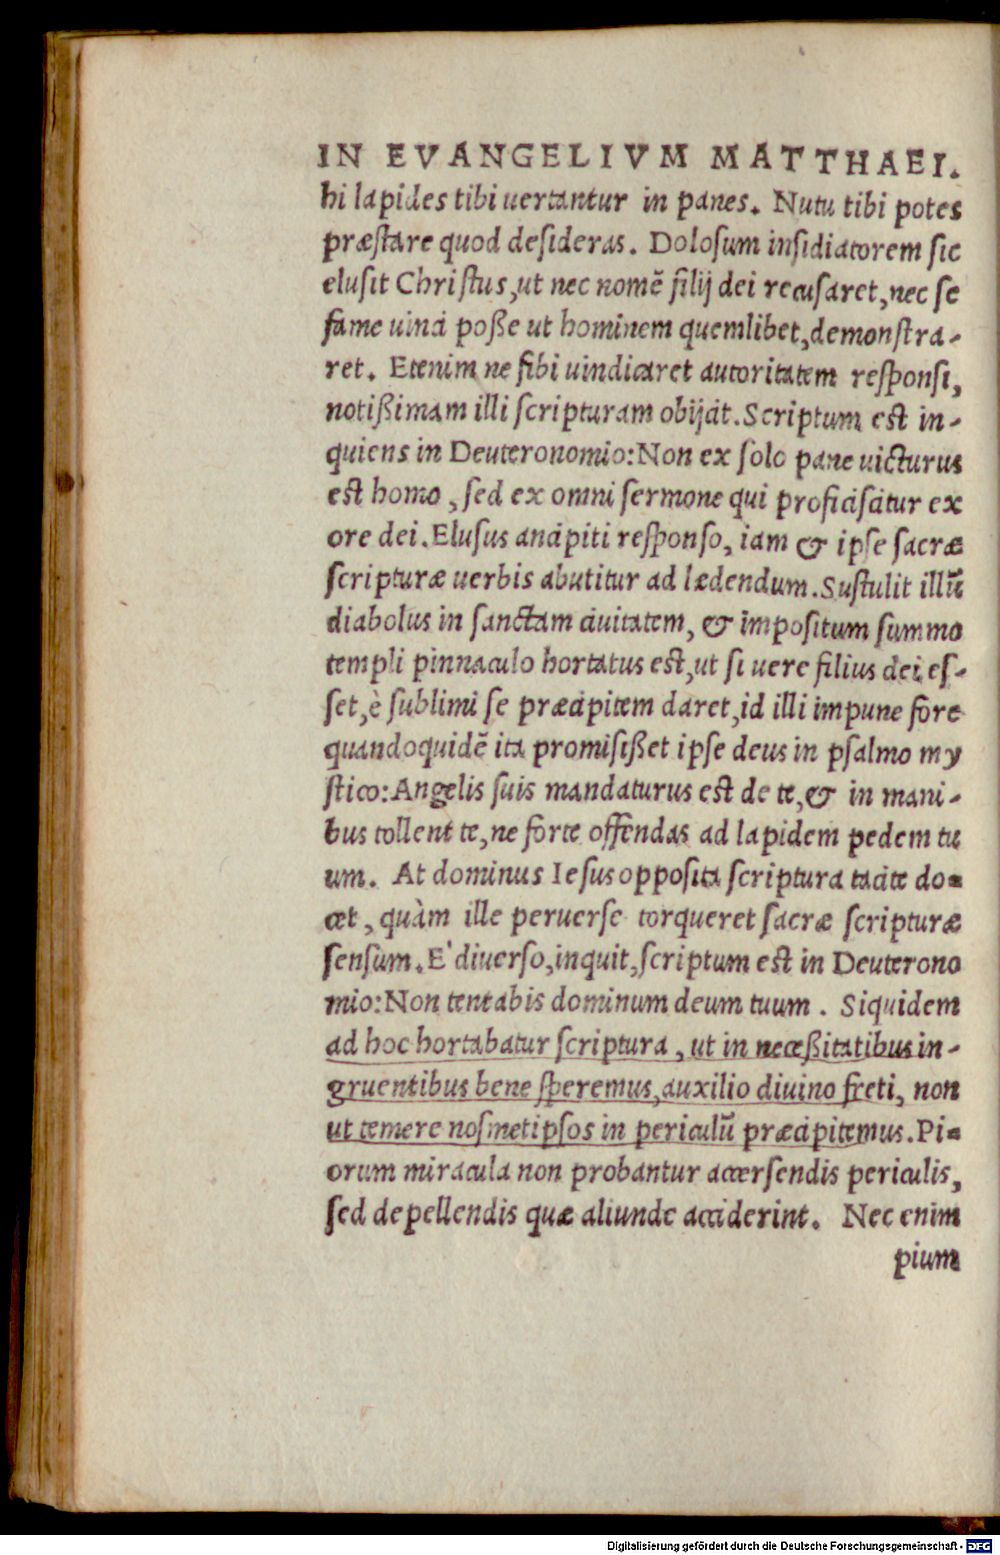 IN EVANGELIVM MATTHAEI.
hi lapides tibi uertantur in panes. Nutu tibi potes
præstare quod desideras. Dolosum insidiatorem sic
elusit Christus,ut nec nomē filij dei recusaret,nec se
fame uinci poße ut hominem quemlibet,demonstra-
ret. Etenim ne sibi uindicaret autoritatem responsi,
notißimam illi scripturam obijcit.Scriptum est in-
quiens in Deuteronomio:Non ex solo pane uicturus
est homo ,sed ex omni sermone qui proficiscitur ex
ore dei.Elusus ancipiti responso, iam & ipse sacræ
scripturæ uerbis abutitur ad lædendum.Sustulit illū
diabolus in sanctam ciuitatem, & impositum summo
templi pinnaculo hortatus est,ut si uere filius dei es-
set,è sublimi se præcipitem daret,id illi impune fore
quandoquidē ita promisißet ipse deus in psalmo my
stico:Angelis suis mandaturus est de te,& in mani-
bus tollent te,ne forte offendas ad lapidem pedem tu
um. At dominus Iesus opposita scriptura tacite do-
cet, quàm ille peruerse torqueret sacræ scripturæ
sensum.E' diuerso,inquit,scriptum est in Deuterono
mio:Non tentabis dominum deum tuum . Siquidem
ad hoc hortabatur scriptura, ut in neceßitatibus in-
gruentibus bene speremus,auxilio diuino freti, non
ut temere nosmetipsos in periculū præcipitemus.Pi-
orum miracula non probantur accersendis periculis,
sed depellendis quæ aliunde acciderint. Nec enim
pium
Digitalisierung gefördert durch die Deutsche Forschungsgemeinschaft - DFG